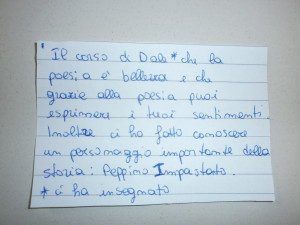 Il corso di Dale * che la
poesia è bellezza e che
grazie alla poesia puoi
esprimere i tuoi sentimenti.
Inoltre ci ha fatto conoscere
un personaggio importante della
storia: Peppino Impastato.
* ci ha insegnato